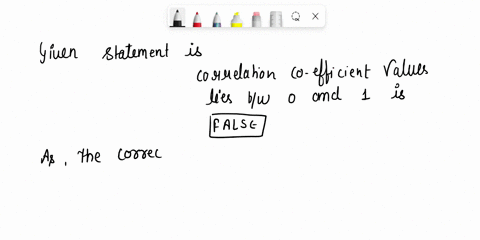 Given statement is
correlation co-efficient values
lies b/w 0 and 1 is
FALSE
As, the correc